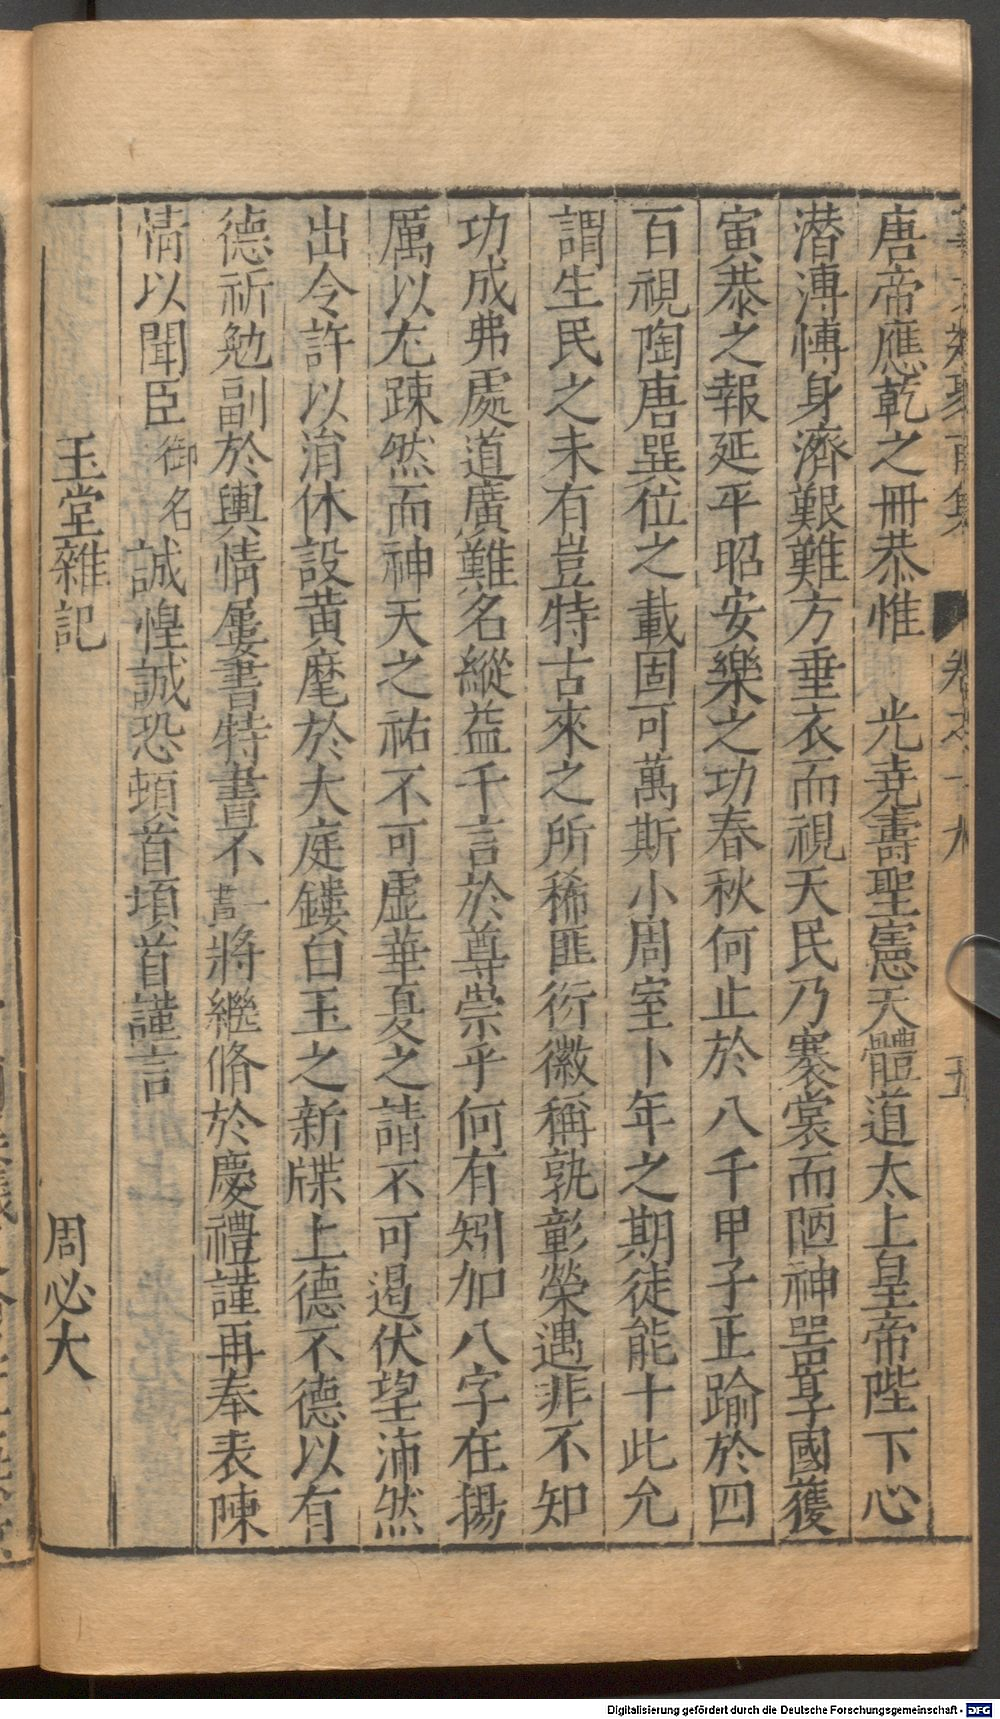 唐帝應乾之冊恭惟 光堯壽聖憲天體道太上皇帝陛下心
潜溥愽身濟艱難方垂衣而視天民乃褰裳而陋神器享國獲
寅恭之報延平昭安樂之功春秋何止於八千甲子正踰於四
百視陶唐巽位之載固可萬斯小周室卜年之期徒能十此允
謂生民之未有豈特古來之所稀匪衍徽稱孰彰榮遇非不知
功成弗處道廣難名縱益千言於尊崇乎何有矧加八字在揚
厲以尤踈然而神天之祐不可虛華夏之請不可遏伏望沛然
出令許以消休設黃麾於大庭鏤白玉之新牒上德不德以有
德祈勉副於輿情屢書特書不一書將繼脩於慶禮謹再奉表陳
情以聞臣御名誠惶誠恐頓首頓首謹言
玉堂雜記 周必大
五
Digitalisierung gefördert durch die Deutsche Forschungsgemeinschaft - DFG